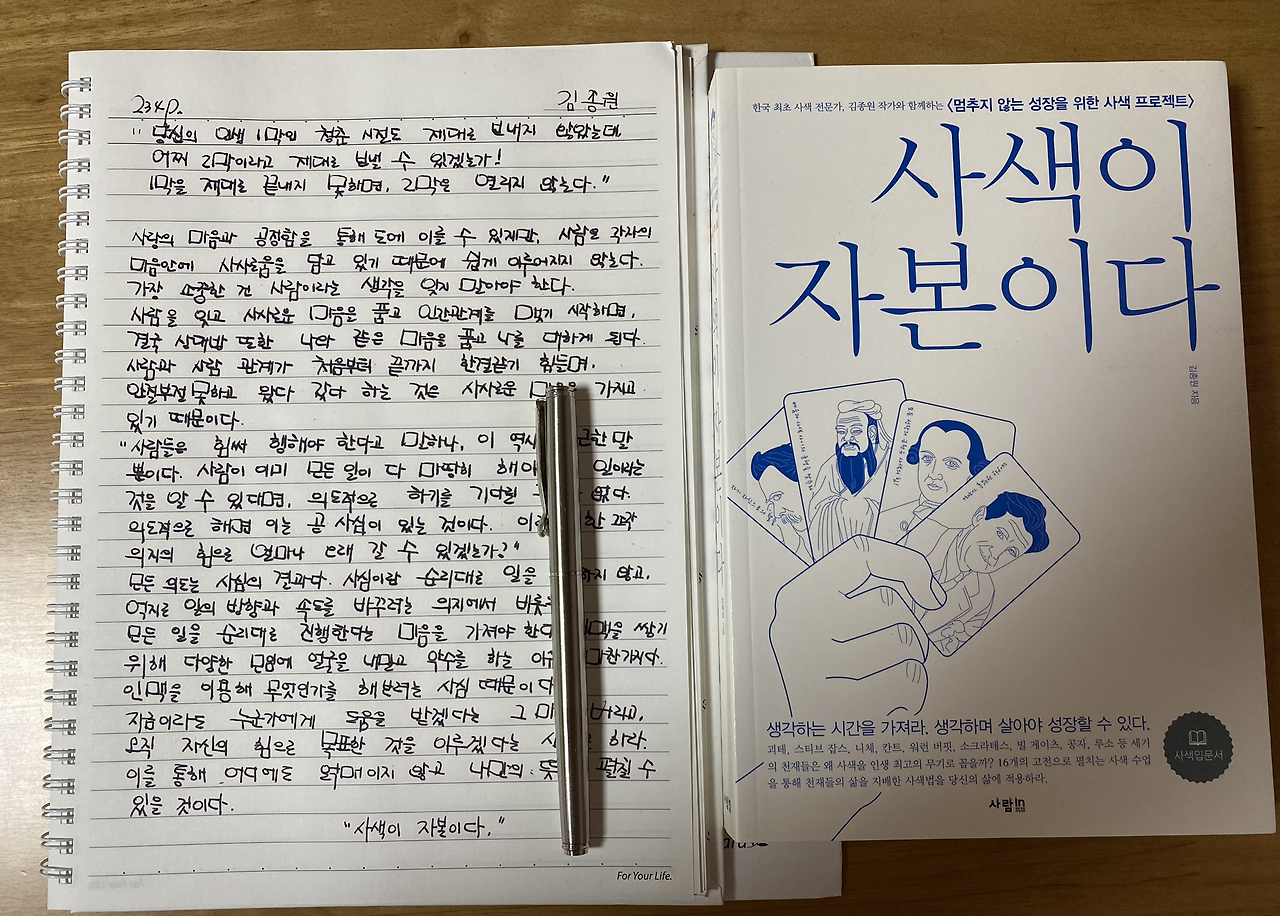 234p.
김종원
"당신의 인생 1막인 청춘 시절도 제대로 보내지 않았는데
어찌 2막이라고 제대로 보낼 수 있겠는가!
1막을 제대로 끝내지 못하면, 2막은 열리지 않는다."
사랑의 마음과 공정함을 통해 도에 이를 수 있지만, 사람은 각자의
마음안에 사사로움을 담고 있기 때문에 쉽게 이루어지지 않는다.
가장 소중한 건 사람이라는 생각을 잊지 말아야 한다.
사람을 잊고 사사로운 마음을 품고 인간관계를 맺기 시작하면,
결국 상대방 또한 나와 같은 마음을 품고 나를 대하게 된다.
사람과 사람 관계가 처음부터 끝까지 한결같기 힘들며,
안절부절 못하고 왔다 갔다 하는 것은 사사로운 가지고
있기 때문이다.
"사람들은 힘써 행해야 한다고 말하나, 이 역시 한 말
뿐이다. 사람이 이미 모든 일이 다 마땅히 해야 일이라는
것을 알 수 있다면, 의도적으로 하기를 기다릴 없다.
의도적으로 해면 이는 곧 사심이 있는 것이다. 한 고작
의지의 힘으로 얼마나 오래 갈 수 있겠는가?"
모든 의도는 사심의 결과다. 사심이란 순리대로 일을 하지 않고,
억지로 일의 방향과 속도를 바꾸려는 의지에서
모든 일을 순리대로 진행한다는 마음을 가져야 한다. 쌓기
위해 다양한 모임에 얼굴을 내밀고 악수를 하는 마찬가지다.
인맥을 이용해 무엇인가를 해보려는 사심 때문이다
지금이라도 누군가에게 도움을 받겠다는 그 버리고,
오직 자신의 힘으로 목표한 것을 이루겠다는 하라.
이를 통해 어디에도 얽매이지 않고 나만의 펼칠 수
있을 것이다.
"사색이 자본이다."
For Your Life.
한국 최초 사색 전문가, 김종원 작가와 함께하는 〈멈추지 않는 성장을 위한 사색 프로젝트〉
사색이
자본이다
김종원 지음
생각하는 시간을 가져라. 생각하며 살아야 성장할 수 있다.
괴테, 스티브 잡스, 니체, 칸트, 워런 버핏, 소크라테스, 빌 게이츠, 공자, 루소 등 세기
의 천재들은 왜 사색을 인생 최고의 무기로 꼽을까? 16개의 고전으로 펼치는 사색 수업
을 통해 천재들의 삶을 지배한 사색법을 당신의 삶에 적용하라.
사색입문서
사람in